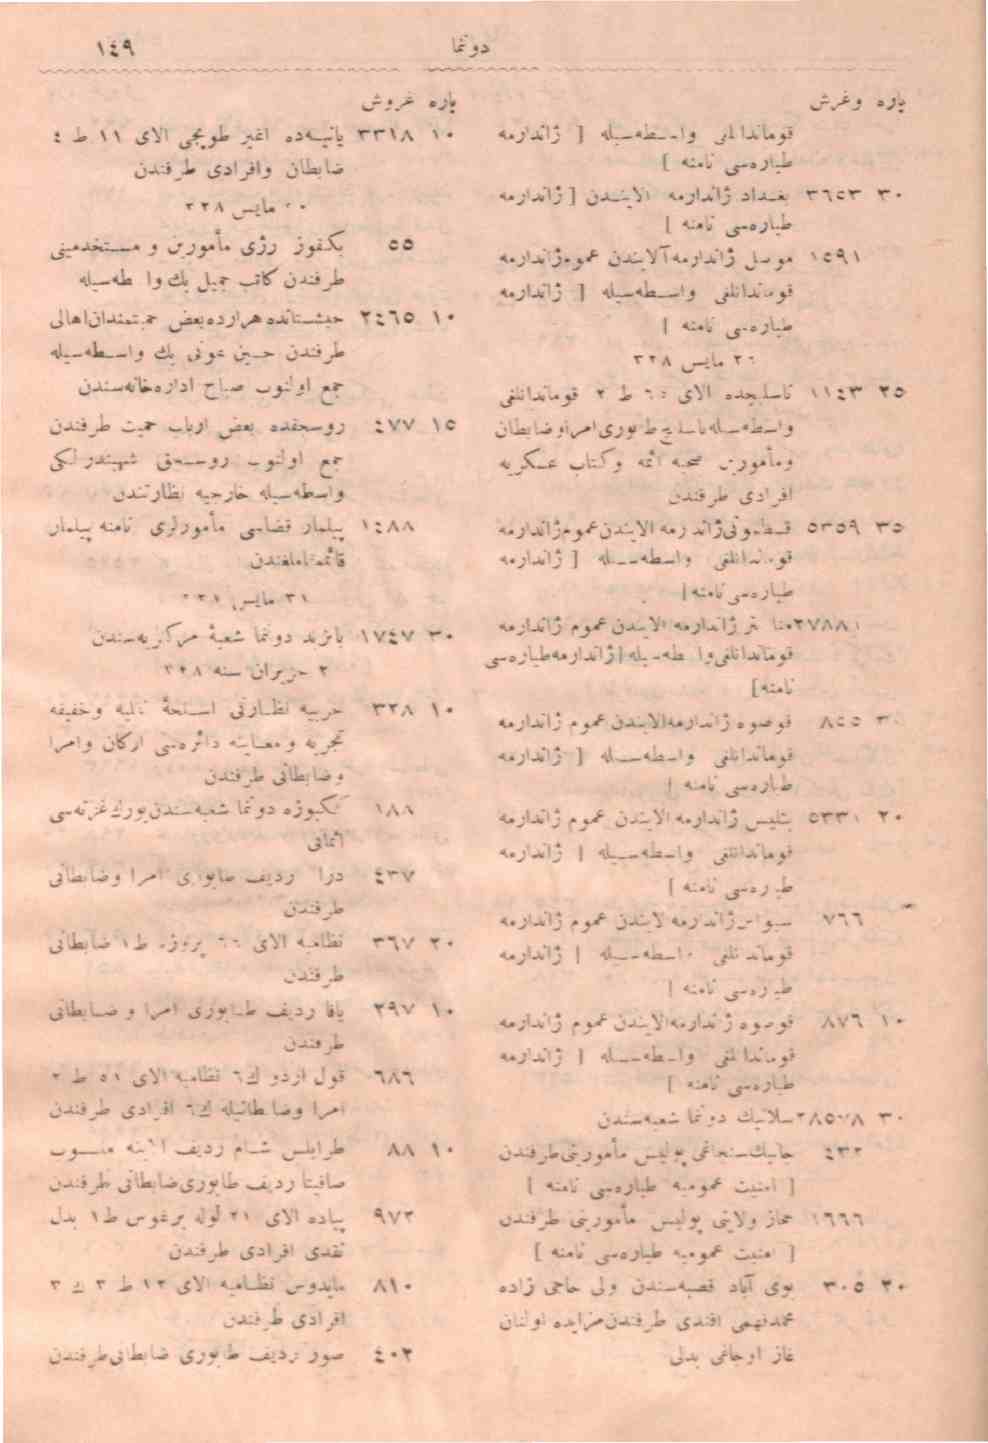 دوننما ١٤٩
پاره وغرش
قومانداانلغى واسطه‌سيله [ ژاندارمه
طياره‌سى نامنه ]
٣٠ ٣٦٥٣ بغداد ژاندارمه الايندن [ ژاندارمه
طياره‌سى نامنه ]
١٥٩١ موصل ژاندارمه آلايندن عموم ژاندارمه
قوماندانلغى واسطه‌سيله [ ژاندارمه
طياره‌سى نامنه ]
مايس ٣٢٨
٢٥ ١١٤٣ ناسليچده الاى ٦٥ ط ٢ قوماندانلغى
واسطه‌سيله ناسليچ طابورى امرا وضابطان
ومأمورين صحيه ائمه وكتاب عسكريه
افرادى طرفندن
٣٥ ٥٣٥٩ قسطمونى ژاندارمه الايندن عموم ژاندارمه
قوماندانلغى واسطه‌سيله [ ژاندارمه
طياره‌سى نامنه ]
ژاندارمه الايندن عموم ژاندارمه
قوماندانلغى واسطه‌سيله [ ژاندارمه طياره‌سى
نامنه ]
قوصوه ژاندارمه الايندن عموم ژاندارمه
قوماندانلغى واسطه‌سيله [ ژاندارمه
طياره‌سى نامنه ]
٢٠ ٥٣٣١ بتليس ژاندارمه الايندن عموم ژاندارمه
قوماندانلغى واسطه‌سيله [ ژاندارمه
طياره‌سى نامنه ]
٧٦٦ سيواس ژاندارمه الايندن عموم ژاندارمه
قوماندانلغى واسطه‌سيله [ ژاندارمه
طياره‌سى نامنه ]
١٠ ٨٧٦ قوصوه ژاندارمه الايندن عموم ژاندارمه
قوماندانلغى واسطه‌سيله [ ژاندارمه
طياره‌سى نامنه ]
٣٠ سلانيك دوننما شعبه‌سندن
٤٣٢ جانيك سنجاغى پوليس مأمورينى طرفندن
[ امنيت عموميه طياره‌سى نامنه ]
١٦٦٦ حجاز ولايتى پوليس مأمورينى طرفندن
[ امنيت عموميه طياره‌سى نامنه ]
٢٠ ٣٠٥ بوى آباد قصبه‌سندن ولى حاجى زاده
محمد فهمى افندى طرفندن مزايده اولنان
غاز اوجاغى بدلى
پاره غروش
١٠ ٣٣١٨ يانيه‌ده اغير طوپجى الاى ١١ ط ٤
ضابطان وافرادى طرفندن
مايس ٣٢٨
٥٥ بكفوز رژى مأمورين و مستخدمينى
طرفندن كاتب جميل بك واسطه‌سيله
١٠ ٢٤٦٥ حبشستانده هرارده بعض حميتمندان اهالى
طرفندن حسين عونى بك واسطه‌سيله
جمع اولنوب صباح اداره‌خانه‌سندن
١٥ ٤٧٧ روسجقده بعض ارباب حميت طرفندن
جمع اولنوب روسجق شهبندرلكى
واسطه‌سيله خارجيه نظارتندن
١٤٨٨ پيلمار قضاسى مأمورلرى نامنه پيلمار
قائممقاملغندن
٣١ مايس
٣٠ ١٧٤٧ بايزيد دوننما شعبۀ مركزيه‌سندن
٢ حزيران سنه ٣٢٨
١٠ ٣٢٨ حربيه نظارتى اسلحۀ ثقيله وخفيفه
تجربه ومعاينه دائره‌سى اركان وامرا
وضابطانى طرفندن
١٨٨ ككبوزه دوننما شعبه‌سندن يورك غزته‌سى
اثمانى
٤٣٧ رديف طابورى امرا وضابطانى
طرفندن
٢٠ ٣٦٧ نظاميه الاى ٦٦ ط ١ ضابطانى
طرفندن
١٠ ٢٩٧ يافا رديف طابورى امرا و ضابطانى
طرفندن
٦٨٦ قول اردو ك ٦ نظاميه الاى ٥١ ط ٢
امرا وضابطانيله ك ٦ افرادى طرفندن
١٠ ٨٨ طرابلس شام رديف الاينه منسوب
صافيتا رديف طابورى ضابطانى طرفندن
٩٧٢ پياده الاى ٢١ لوله برغوس ط ١ بدل
نقدى افرادى طرفندن
٨١٠ مايدوس نظاميه الاى ١٢ ط ٣ ك ٣
افرادى طرفندن
٤٠٢ صور رديف طابورى ضابطانى طرفندن